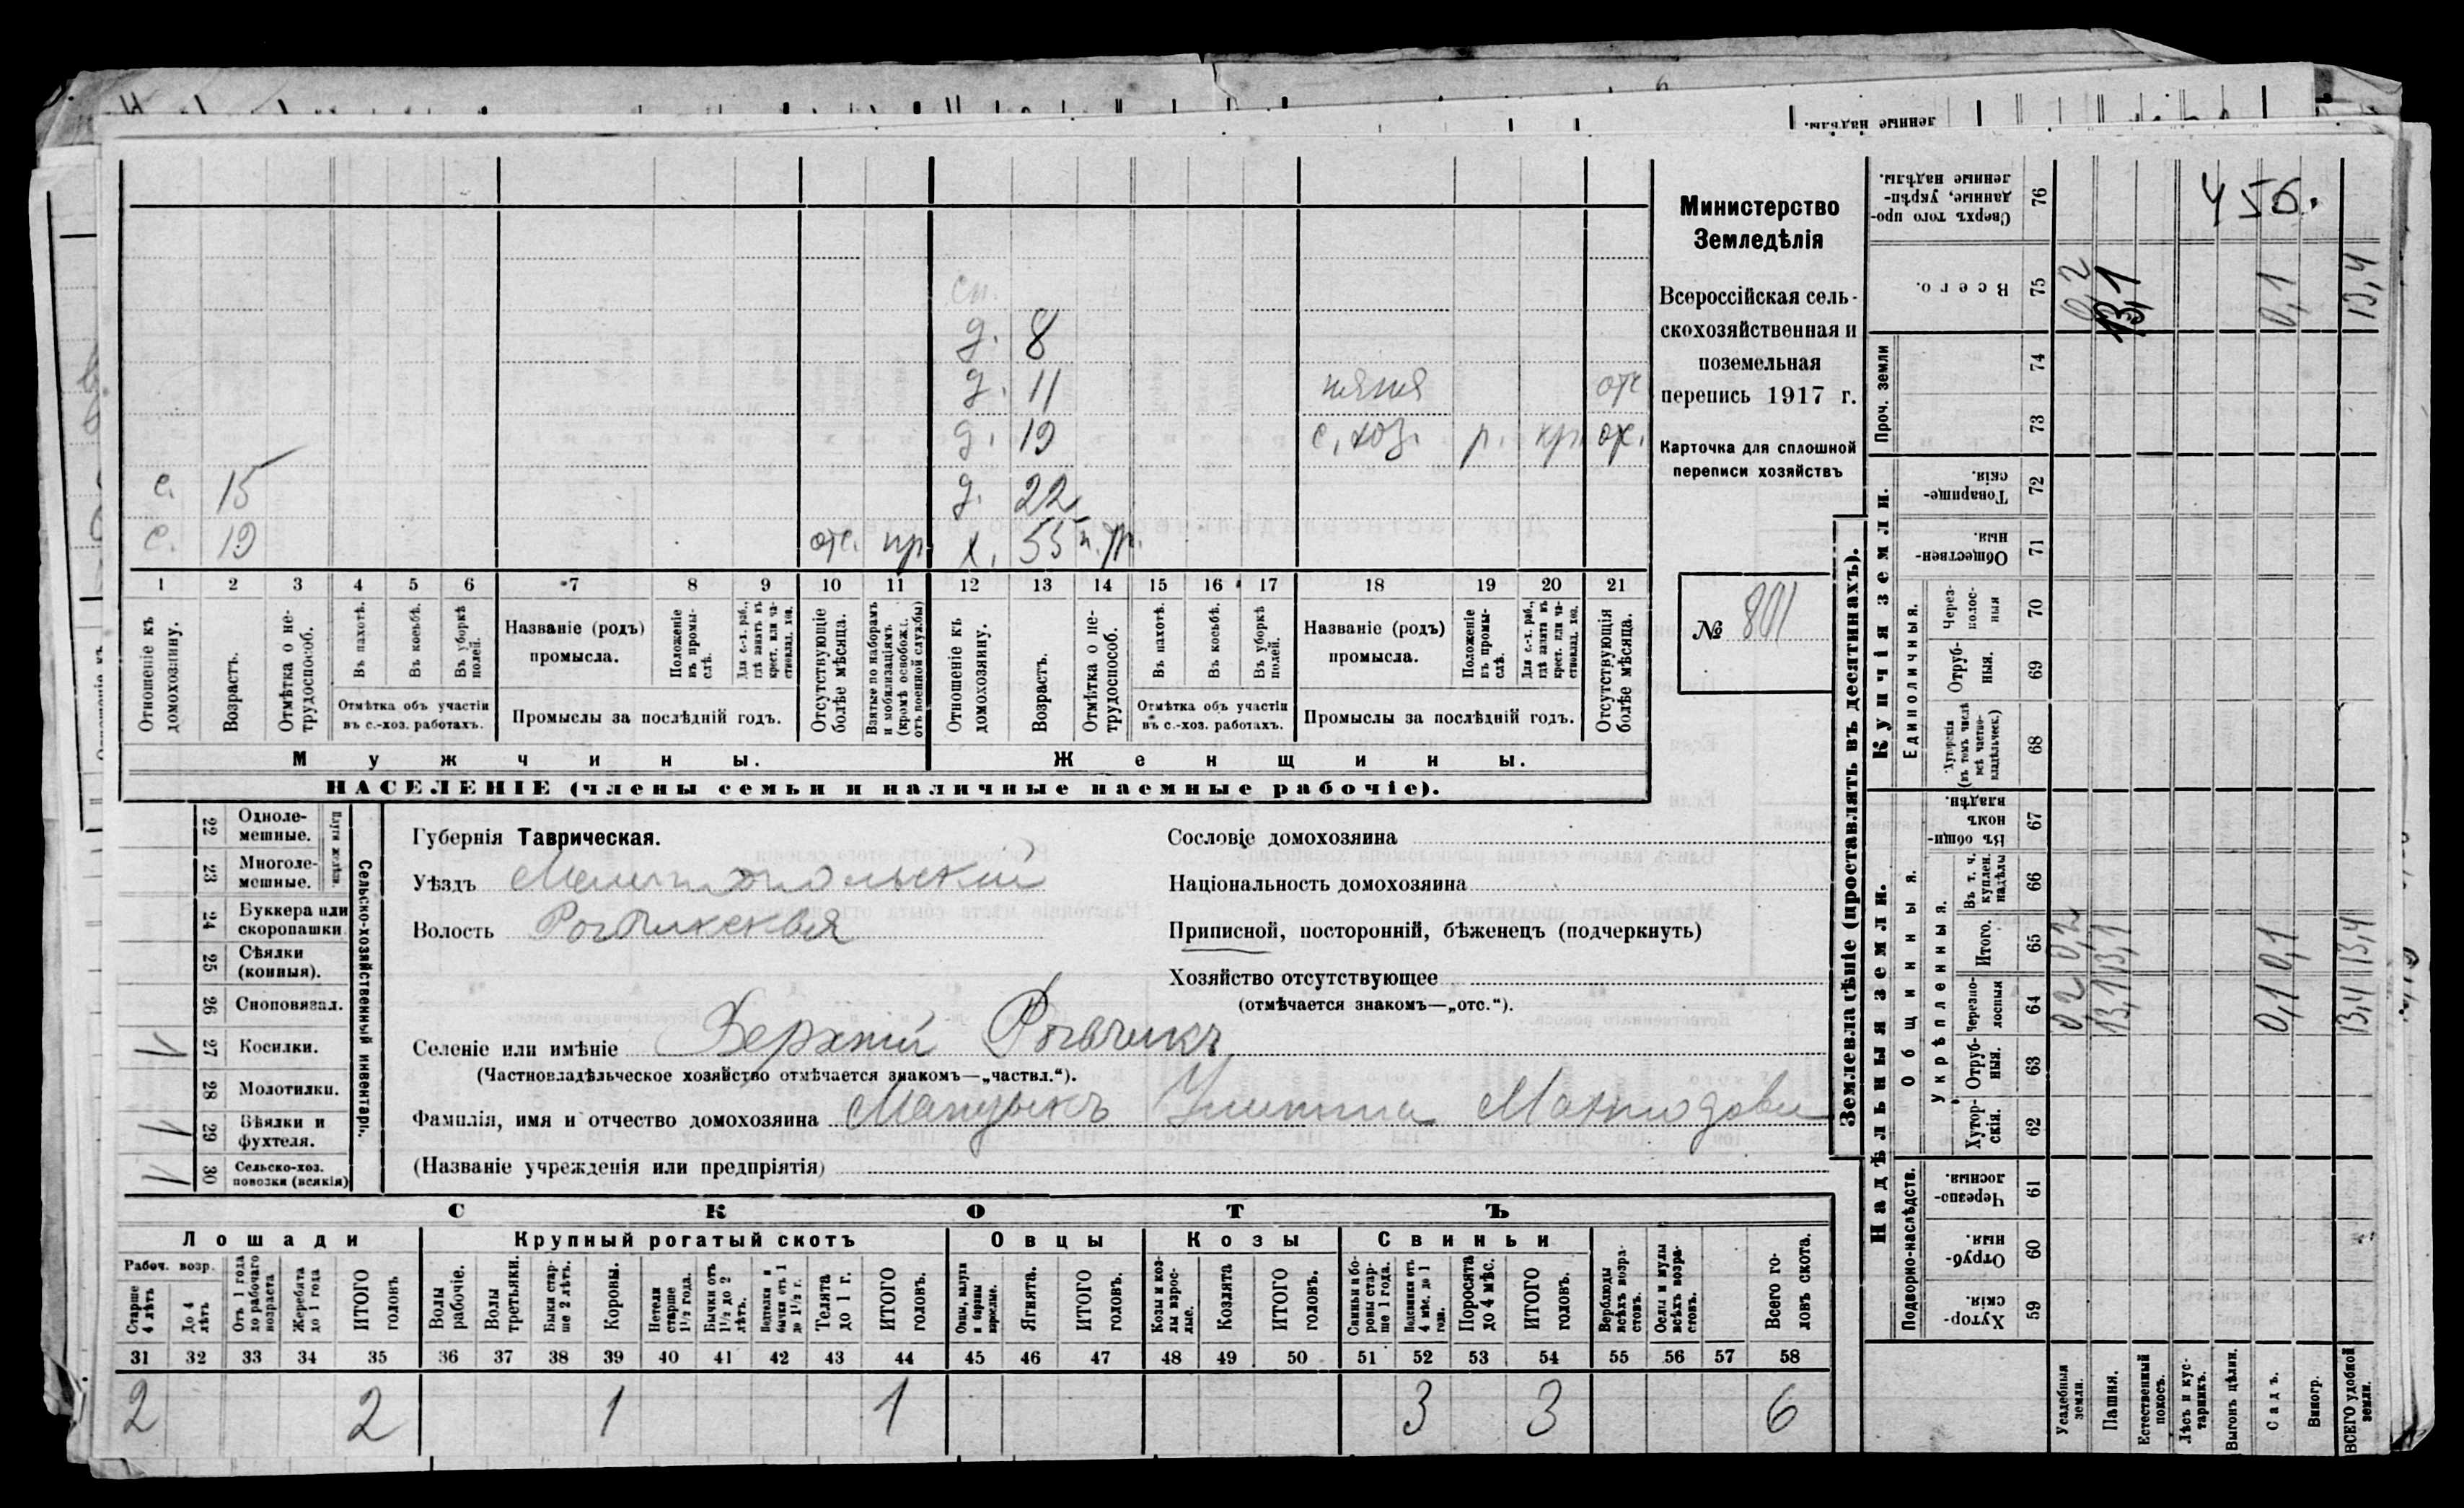 ленные надѣлы.
Министерство
Земледѣлія
Всероссійская сель-
скохозяйственная и
поземельная
перепись 1917 г.
Карточка для сплошной
переписи хозяйствъ
№ 801
д. 8
д. 11 няня отс
д. 19 с. хоз. р. кр. отс.
с. 15 д. 22
с. 19 отс. пр. х. 55 н. тр.
1 2 3 4 5 6 7 8 9 10 11 12 13 14 15 16 17 18 19 20 21
Отношеніе къ домохозяину.
Возрастъ.
Отмѣтка о не-трудоспособ.
Въ пахотѣ.
Въ косьбѣ.
Въ уборкѣ полей.
Отмѣтка объ участіи въ с.-хоз. работахъ.
Названіе (родъ) промысла.
Положеніе въ промы-слѣ.
Для с.-х. раб., гдѣ занятъ въ крест. или ча-стновлад. хоз.
Промыслы за послѣдній годъ.
Отсутствующіе болѣе мѣсяца.
Взятые по наборамъ и мобилизаціямъ (кромѣ освобожд. отъ военной службы)
Отношеніе къ домохозяину.
Возрастъ.
Отмѣтка о не-трудоспособ.
Въ пахотѣ.
Въ косьбѣ.
Въ уборкѣ полей.
Отмѣтка объ участіи въ с.-хоз. работахъ.
Названіе (родъ) промысла.
Положеніе въ промы-слѣ.
Для с.-х. раб., гдѣ занята въ крест. или ча-стновлад. хоз.
Промыслы за послѣдній годъ.
Отсутствующія болѣе мѣсяца.
Мужчины. Женщины.
НАСЕЛЕНІЕ (члены семьи и наличные наемные рабочіе).
22 Одноле-мешные.
23 Многоле-мешные.
Плуги желѣзн.
24 Буккера или скоропашки
25 Сѣялки (конныя).
26 Сноповязал.
27 Косилки.
28 Молотилки.
29 Вѣялки и фухтеля.
30 Сельско-хоз. повозки (всякія)
Сельско-хозяйственный инвентарь.
Губернія Таврическая.
Уѣздъ Мелитопольскій
Волость Рогачикская
Селеніе или имѣніе Верхній Рогачикъ
(Частновладѣльческое хозяйство отмѣчается знакомъ—„частвл.“).
Фамилія, имя и отчество домохозяина
(Названіе учрежденія или предпріятія)
Сословіе домохозяина
Національность домохозяина
Приписной, посторонній, бѣженецъ (подчеркнуть)
Хозяйство отсутствующее
(отмѣчается знакомъ—„отс.“).
СКОТЪ
Лошади Крупный рогатый скотъ Овцы Козы Свиньи
Рабоч. возр.
Старше 4 лѣтъ
До 4 лѣтъ
Отъ 1 года до рабочаго возраста
Жеребята до 1 года
ИТОГО головъ
Волы рабочіе.
Волы третьяки.
Быки стар-ше 2 лѣтъ.
Коровы.
Нетели старше 1½ года.
Бычки отъ 1½ до 2 лѣтъ.
Подтелки и бычки отъ 1 до 1½ г.
Телята до 1 г.
ИТОГО головъ.
Овцы, валухи и бараны взрослые.
Ягнята.
ИТОГО головъ.
Козы и коз-лы взрос-лые.
Козлята
ИТОГО головъ.
Свиньи и бо-ровы стар-ше 1 года.
Подсвинки отъ 4 мѣс. до 1 года.
Поросята до 4 мѣс.
ИТОГО головъ.
Верблюды всѣхъ возра-стовъ.
Ослы и мулы всѣхъ возра-стовъ.
Всего го-ловъ скота.
31 32 33 34 35 36 37 38 39 40 41 42 43 44 45 46 47 48 49 50 51 52 53 54 55 56 57 58
2 2 1 1 3 3 6
Землевладѣніе (проставлять въ десятинахъ).
Надѣльныя земли.
Купчія земли.
Проч. земли
Сверхъ того про-данные, укрѣп-ленные надѣлы. 76
Всего. 75
74
73
Товарище-скія. 72
Обществен-ныя. 71
Единоличныя.
Через-полос-ныя 70
Отруб-ныя. 69
Хуторскія (въ томъ числѣ всѣ частно-владѣльческ.) 68
Общинныя.
Въ общи-номъ владѣн. 67
Укрѣпленныя.
Въ т. ч. куплен. надѣлы 66
Итого. 65
Черезпо-лосныя 64
Отруб-ныя. 63
Хутор-скія. 62
Подворно-наслѣдств.
Черезпо-лосныя. 61
Отруб-ныя. 60
Хутор-скія. 59
Усадебныя земли. 0,2 0,2 0,2
Пашня. 13,1 13,1 13,1
Естественный покосъ.
Лѣсъ и кус-тарникъ.
Выгонъ цѣлин.
Садъ. 0,1 0,1 0,1
Виногр.
ВСЕГО удобной земли. 13,4 13,4 13,4
456.